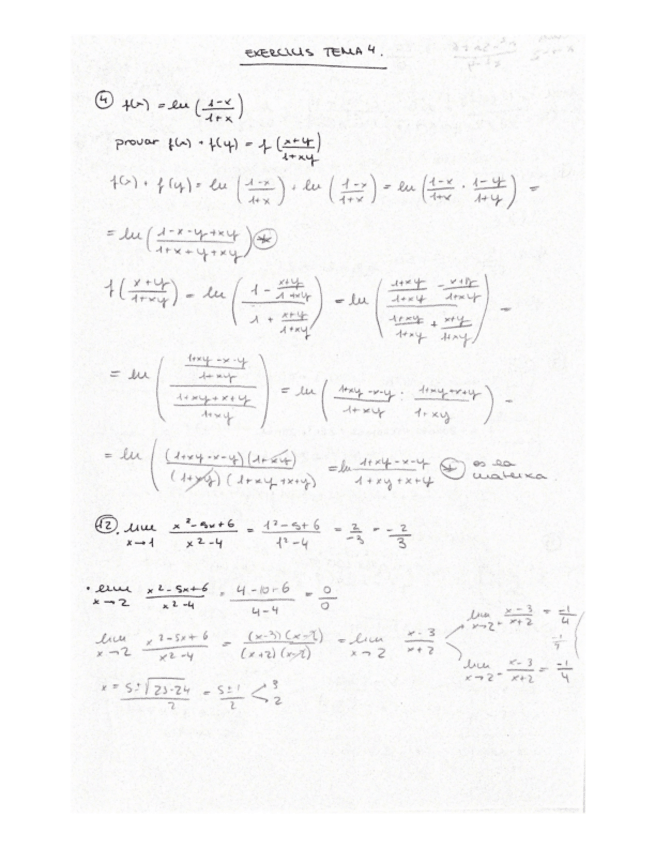 EXERCICIS TEMA 4.
④ f(x) = ln ((1-x)/(1+x))
provar f(x) + f(y) = f ((x+y)/(1+xy))
f(x) + f(y) = ln ((1-x)/(1+x)) + ln ((1-x)/(1+x)) = ln ((1-x)/(1+x) · (1-y)/(1+y)) =
= ln ((1-x-y+xy)/(1+x+y+xy)) *
f ((x+y)/(1+xy)) = ln ((1 - (x+y)/(1+xy))/(1 + (x+y)/(1+xy))) = ln (((1+xy)/(1+xy) - (x+y)/(1+xy))/((1+xy)/(1+xy) + (x+y)/(1+xy))) =
= ln (((1+xy-x-y)/(1+xy))/((1+xy+x+y)/(1+xy))) = ln ((1+xy-x-y)/(1+xy) : (1+xy+x+y)/(1+xy)) =
= ln (((1+xy-x-y)(1+xy))/((1+xy)(1+xy+x+y))) = ln (1+xy-x-y)/(1+xy+x+y) * es la mateixa.
⑫. lim x→1 (x²-5x+6)/(x²-4) = (1²-5+6)/(1²-4) = 2/-3 = -2/3
· lim x→2 (x²-5x+6)/(x²-4) = (4-10+6)/(4-4) = 0/0
lim x→2 (x²-5x+6)/(x²-4) = ((x-3)(x-2))/((x+2)(x-2)) = lim x→2 (x-3)/(x+2)
lim x→2⁺ (x-3)/(x+2) = -1/4
lim x→2⁻ (x-3)/(x+2) = -1/4
x = (5±√(25-24))/2 = (5±1)/2 < 3 2